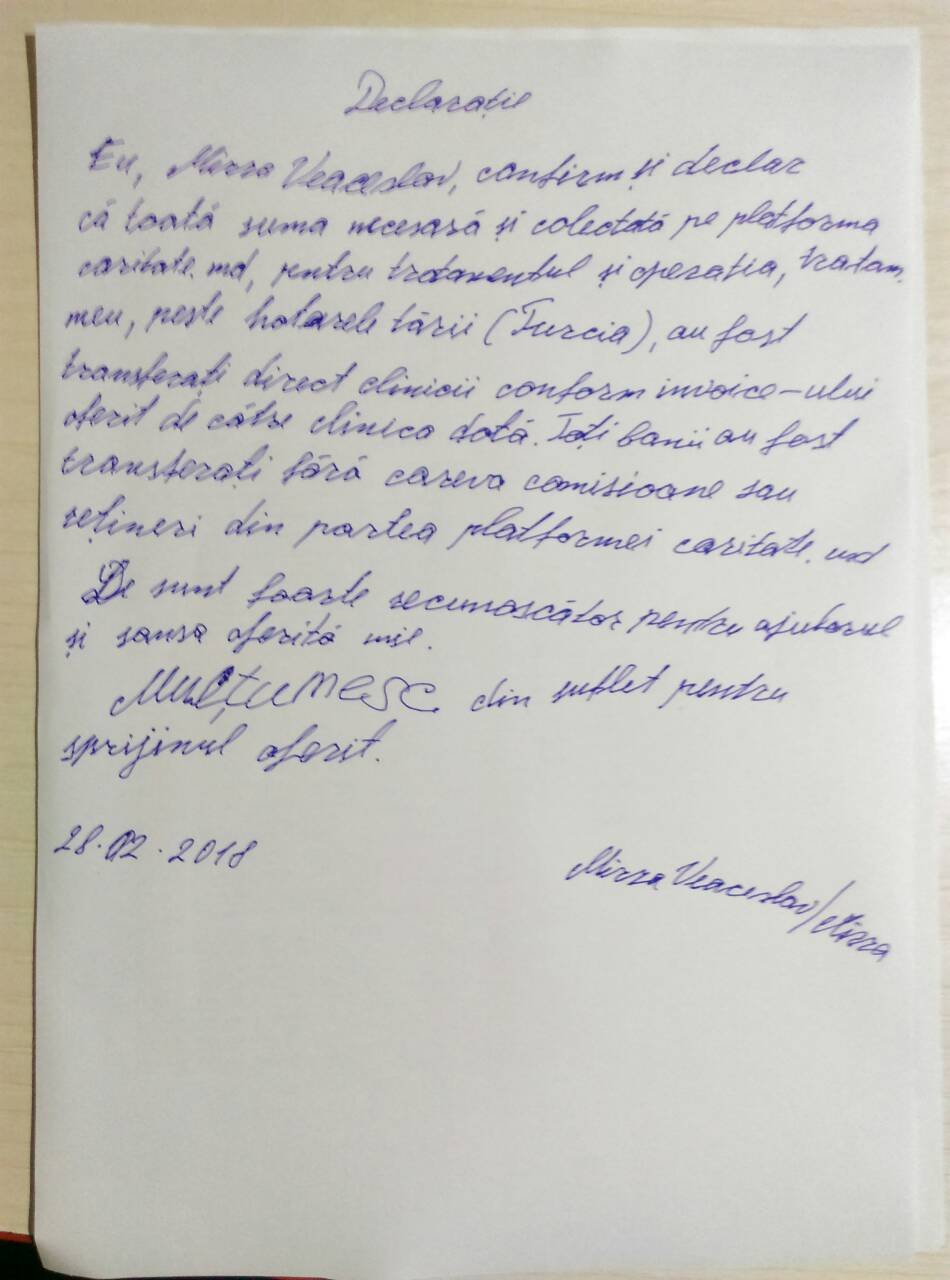 Declarație
Eu, Mirza Veaceslav, confirm și declar
că toată suma necesară și colectată pe platforma
caritate.md, pentru tratamentul și operația, tratam.
meu, peste hotarele tării (Turcia), au fost
transferați direct clinicii conform invoice-ului
oferit de către clinica dată. Toți banii au fost
transferați fără careva comisioane sau
rețineri din partea platformei caritate.md
De sunt foarte recunoscător pentru ajutorul
și sansa oferită mie.
Mulțumesc din suflet pentru
sprijinul oferit.
28.02.2018
Mirza Veaceslav/Mirza